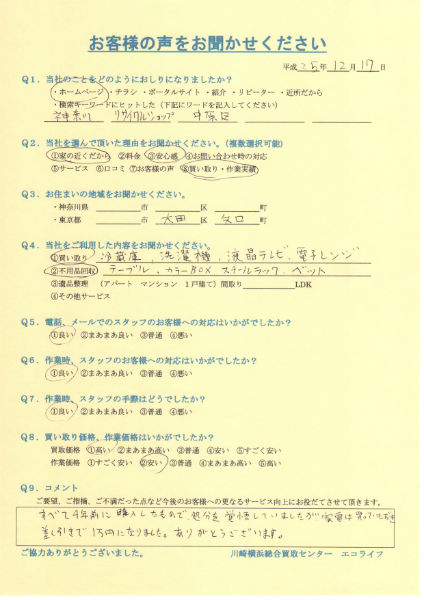 お客様の声をお聞かせください
平成 25年 12月 17日
Q1．当社のことをどのようにおしりになりましたか？
・ホームページ ・チラシ ・ポータルサイト ・紹介 ・リピーター ・近所だから
・検索キーワードにヒットした（下記にワードを記入してください）
神奈川 リサイクルショップ 中原区
Q2．当社を選んで頂いた理由をお聞かせください。（複数選択可能）
①家の近くだから ②料金 ③安心感 ④お問い合わせ時の対応
⑤サービス ⑥口コミ ⑦お客様の声 ⑧買い取り・作業実績
Q3．お住まいの地域をお聞かせください。
・神奈川県 市 区 町
・東京都 市 大田 区 矢口 町
Q4．当社をご利用した内容をお聞かせください。
①買い取り 冷蔵庫，洗濯機，液晶テレビ，電子レンジ
②不用品回収 テーブル，カラーBOX スチールラック，ベット
③遺品整理 （アパート マンション 1戸建て）間取り LDK
④その他サービス
Q5．電話、メールでのスタッフのお客様への対応はいかがでしたか？
①良い ②まあまあ良い ③普通 ④悪い
Q6．作業時、スタッフのお客様への対応はいかがでしたか？
①良い ②まあまあ良い ③普通 ④悪い
Q7．作業時、スタッフの手際はどうでしたか？
①良い ②まあまあ良い ③普通 ④悪い
Q8．買い取り価格、作業価格はいかがでしたか？
買取価格 ①高い ②まあまあ高い ③普通 ④安い ⑤すごく安い
作業価格 ①すごく安い ②安い ③普通 ④まあまあ高い ⑤高い
Q9．コメント
ご要望、ご指摘、ご不満だった点など今後のお客様への更なるサービス向上にお役だてさせて頂きます。
すべて4年前に購入したもので、処分を覚悟していましたが家電は
差し引きで1万円になりました。ありがとうございます。
ご協力ありがとうございました。 川崎横浜総合買取センター エコライフ